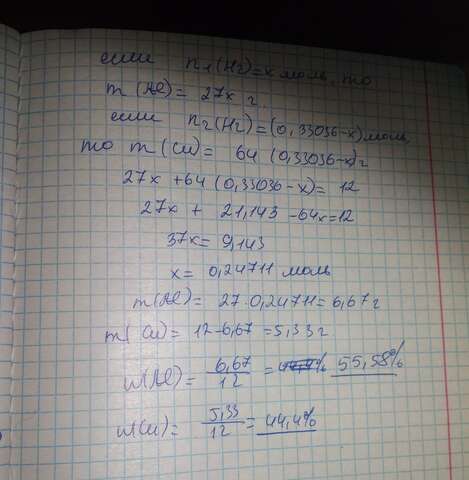 если n₁(H₂)=x моль, то
m(Al)= 27x г.
если n₂(H₂)=(0,33036-x)моль
то m(Cu)= 64(0,33036-x)г
27x +64(0,33036-x)= 12
27x + 21,143 -64x=12
37x= 9,143
x= 0,24711 моль
m(Al)= 27·0,24711=6,67г
m(Cu)= 12-6,67=5,33г
w(Al)= 6,67/12 = 55,58%
w(Cu)= 5,33/12 = 44,4%